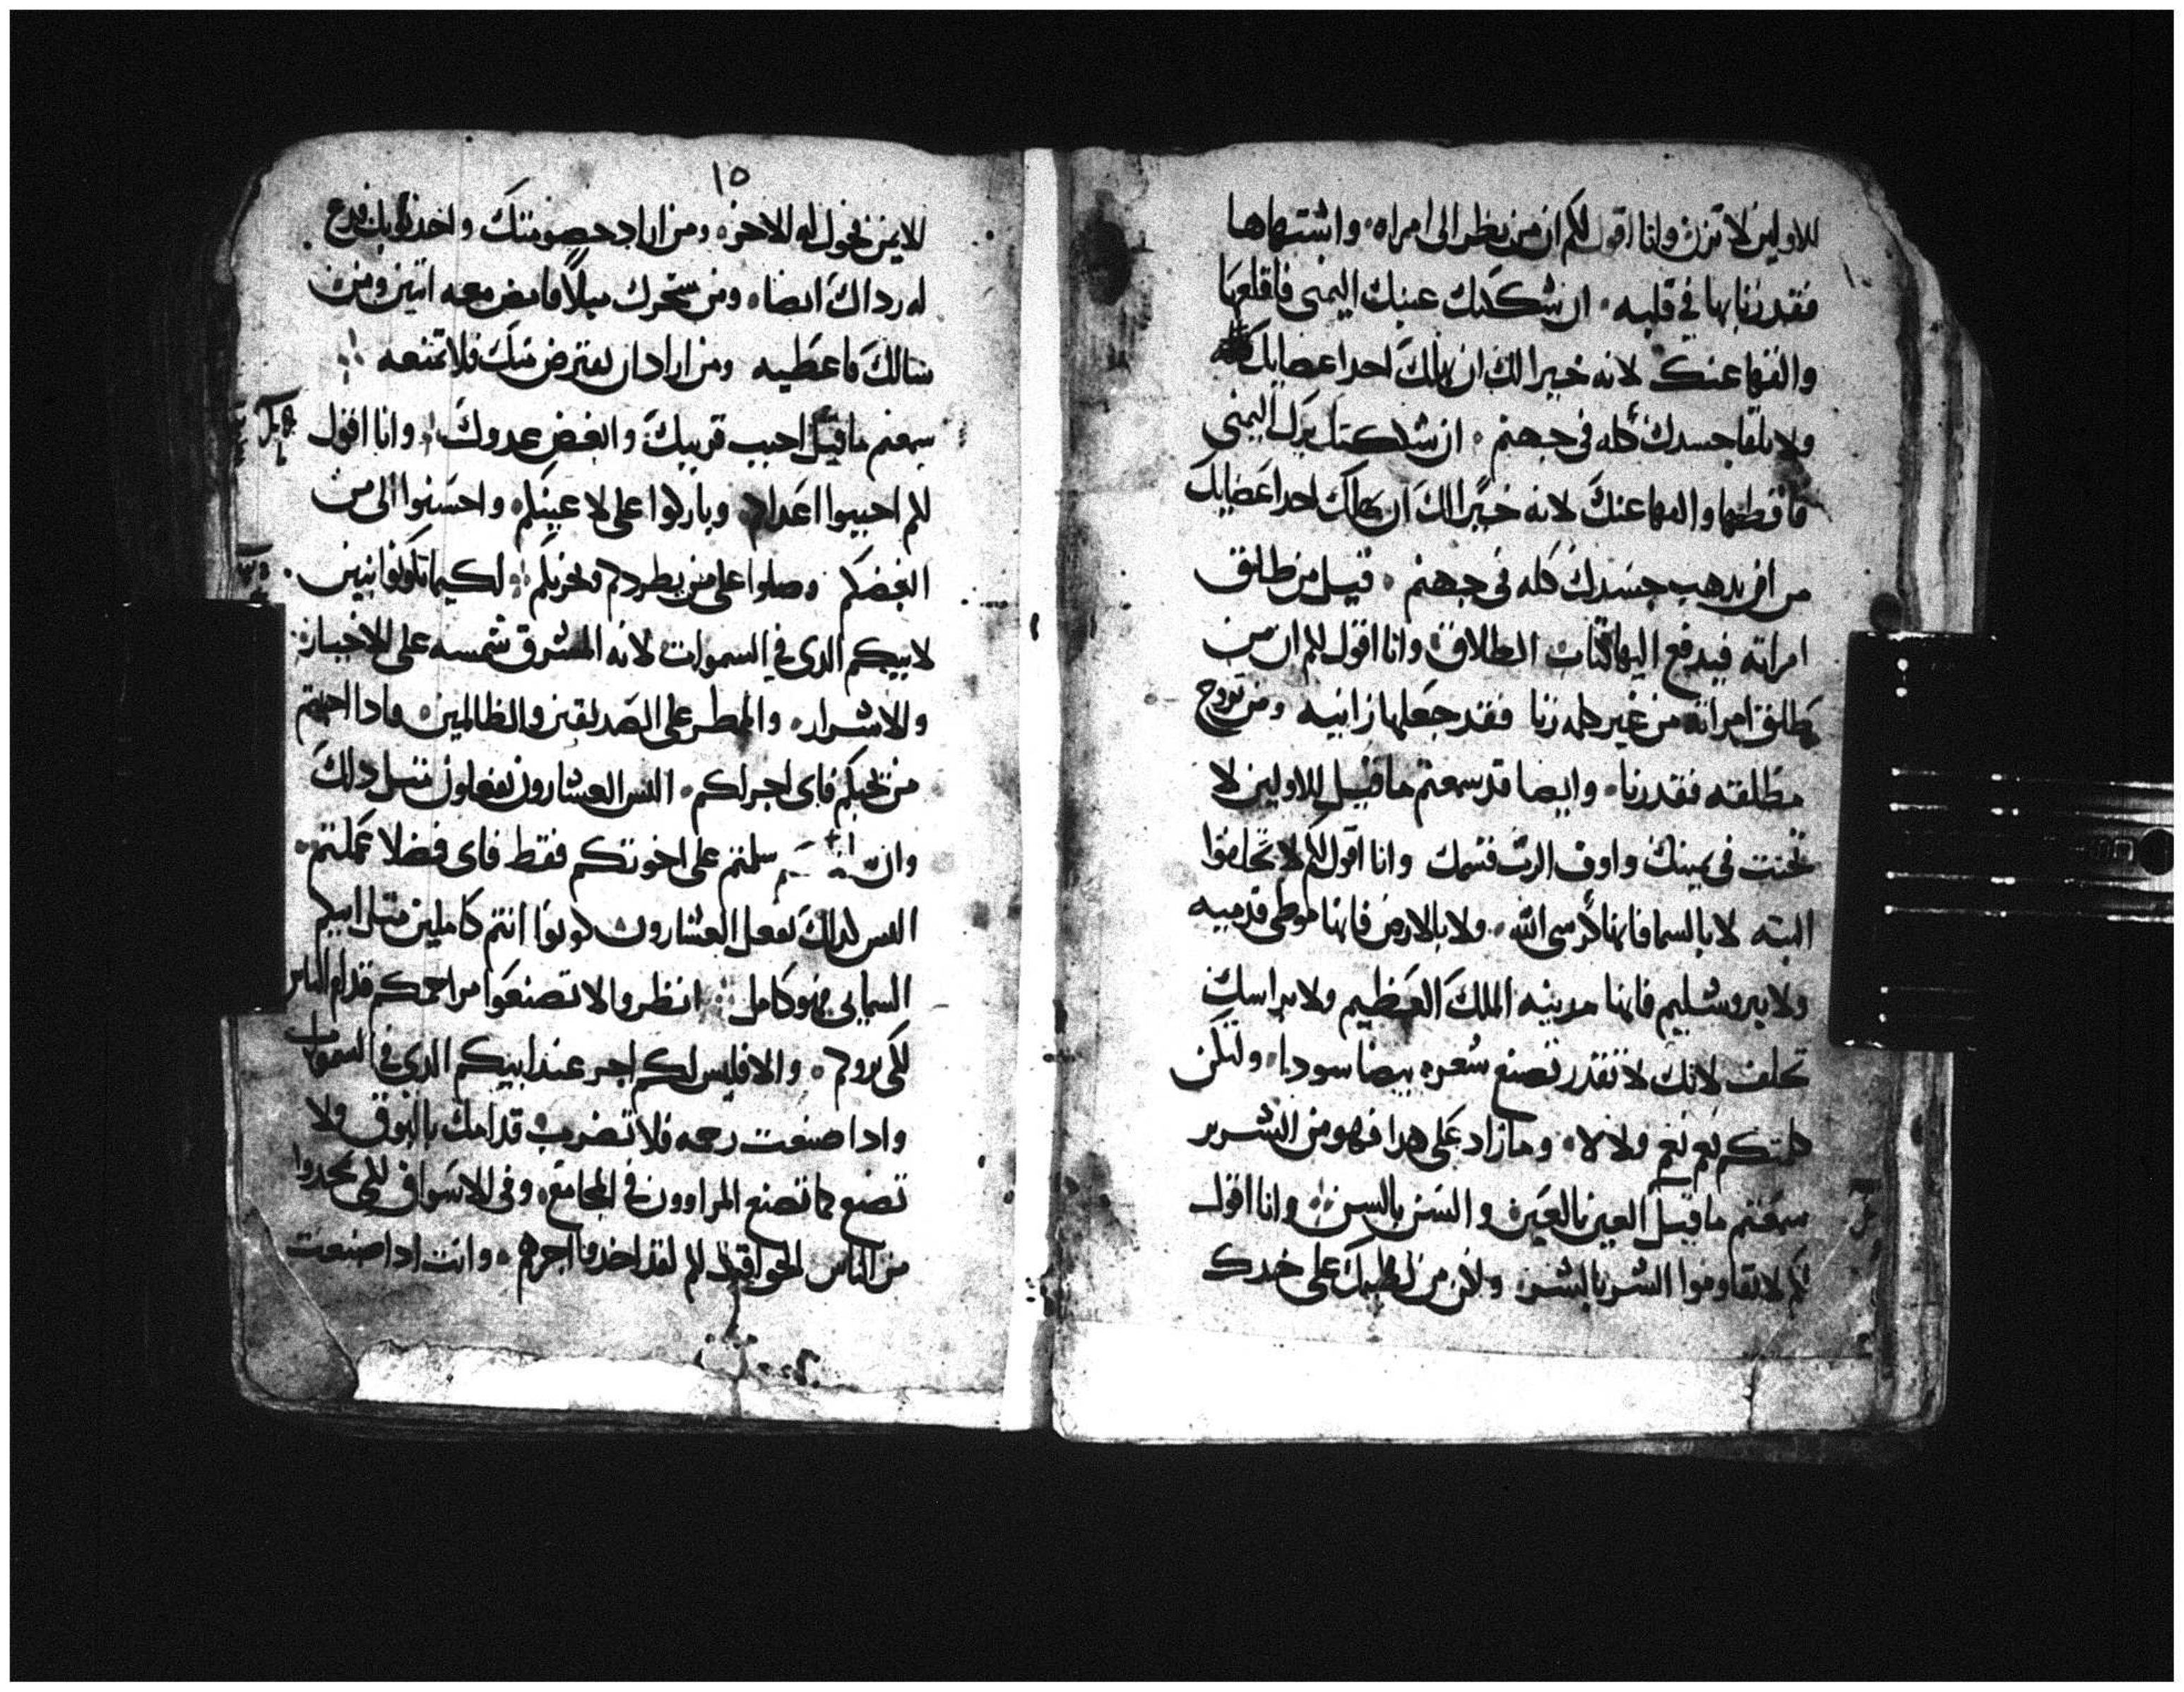 للاولين لا تزن وانا اقول لكم ان من نظر الى امراه واشتهاها
فقد زنا بها في قلبه ان شككتك عينك اليمنى فاقلعها
والقها عنك لانه خيرا لك ان يهلك احد اعضايك
ولا يلقا جسدك كله في جهنم ان شككتك يدك اليمنى
فاقطعها والقها عنك لانه خيرا لك ان يهلك احد اعضايك
من ان يدهب جسدك كله في جهنم قيل من طلق
امراته فيدفع اليها كتاب الطلاق وانا اقول لكم ان من
يطلق امراته من غير كلمه زنا فقد جعلها زانيه ومن تزوج
مطلقه فقد زنا وايضا قد سمعتم ما قيل للاولين لا
تحنت في يمينك واوف الرب قسمك وانا اقول لكم لا تحلفوا
البته لا بالسما فانها كرسي الله ولا بالارض فانها موطى قدميه
ولا بيروشليم فانها مدينه الملك العظيم ولا براسك
تحلف لانك لا تقدر تصنع شعره بيضا سودا ولتكن
كلمتكم نعم نعم ولا لا وما زاد على هدا فهو من الشرير
سمعتم ما قيل العين بالعين والسن بالسن وانا اقول
لكم لا تقاوموا الشر بالشر ولكن من لطمك على خدك
١٥
الايمن فحول له الاخر ومن اراد خصومتك واخد ثوبك فدع
له رداك ايضا ومن سخرك ميلا فامض معه اتنين ومن
سالك فاعطيه ومن اراد ان يقترض منك فلا تمنعه
سمعتم ما قيل احبب قريبك وابغض عدوك وانا اقول
لكم احبوا اعداكم وباركوا على لاعينكم واحسنوا الى من
ابغضكم وصلوا على من يطردكم ويحزنكم لكيما تكونوا بنين
لابيكم الدى في السموات لانه المشرق شمسه على الاخيار
والاشرار والممطر على الصديقين والظالمين وادا احببتم
من يحبكم فاى اجر لكم اليس العشارون يفعلون متل دلك
وان سلمتم على اخوتكم فقط فاى فضلا عملتم
اليس كدلك يفعل العشارون كونوا انتم كاملين متل ابيكم
السمايى فهو كامل انظروا لا تصنعوا مراحمكم قدام الناس
لكى يروكم والا فليس لكم اجر عند ابيكم الدى في السموات
وادا صنعت رحمه فلا تضرب قدامك بالبوق ولا
تصنع كما تصنع المراوون في المجامع وفى الاسواق لكى يمجدوا
من الناس الحق اقول لكم لقد اخدوا اجرهم وانت ادا صنعت